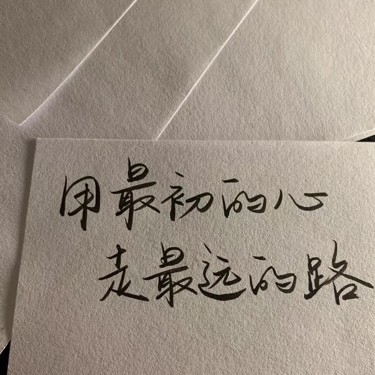 用最初的心
走最远的路